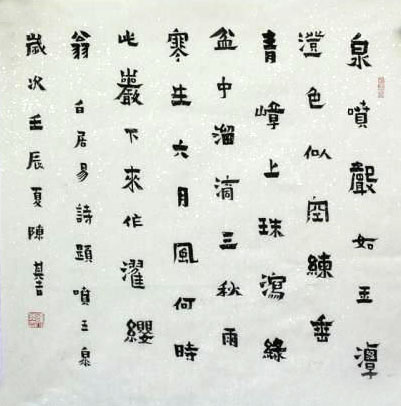 泉噴聲如玉潭
澄色似空練垂
青嶂上珠瀉綠
盆中溜滴三秋雨
寒生六月風何時
此巖下來作濯纓
翁 白居易詩題噴玉泉
歲次壬辰夏陳其吉